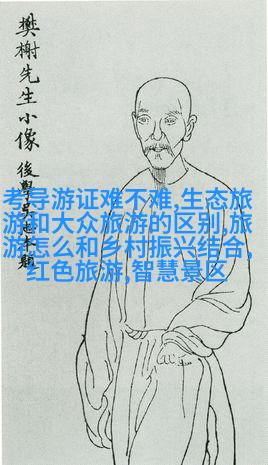 樊榭先生小像
後學
考导游证难不难,生态旅
游和大众旅游的区别,旅
游怎么和乡村振兴结合,
红色旅游,智慧景区